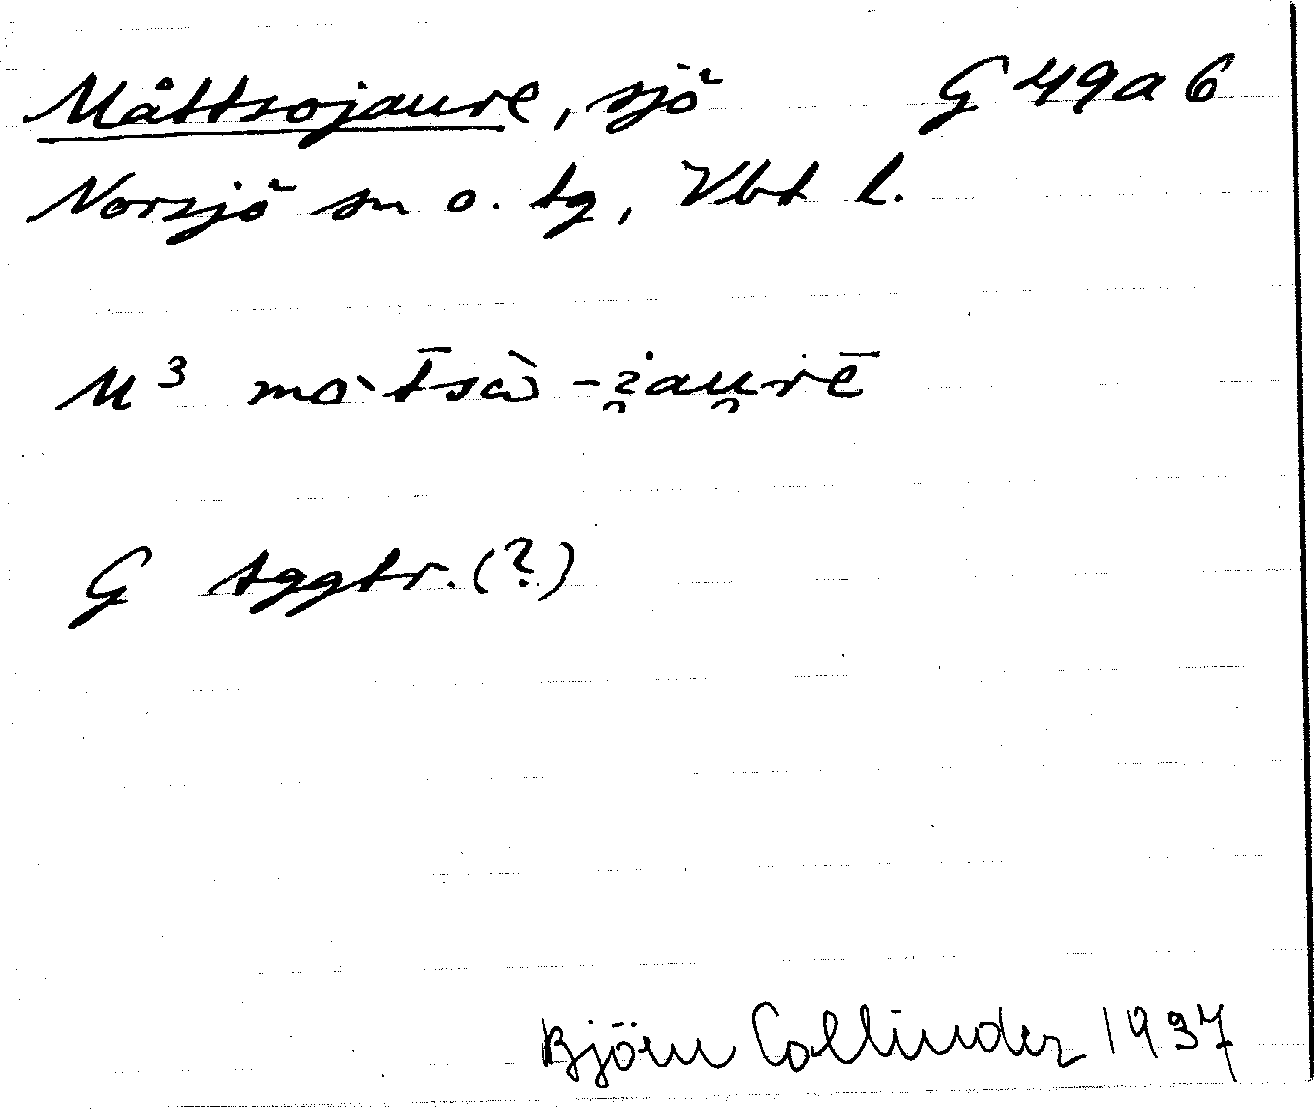 Måttsojaure, sjö G 49a6
Norsjö sn o. tg, Vbt l.
U³ mo`t̄sà -i̯au̯rē
G tggtr. (?)
Björn Collinder 1937